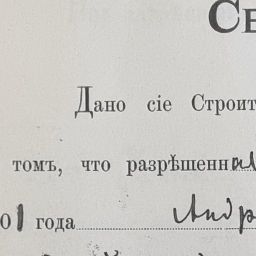 СВ
Дано сіе Строит
томъ, что разрѣшенная
01 года Андр